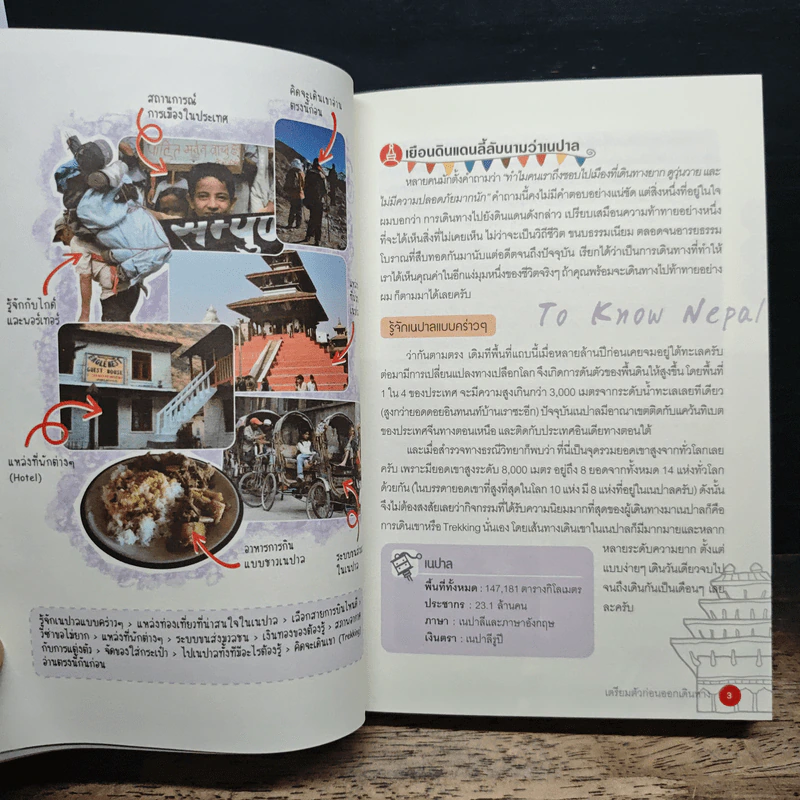 สถานการณ์
การเมืองในประเทศ
คิดจะเดินเขาอ่าน
ตรงนี้ก่อน
รู้จักกับไกด์
และพอร์เทอร์
GUEST HOUSE
แหล่งที่พักต่างๆ
(Hotel)
อาหารการกิน
แบบชาวเนปาล
ระบบขนส
ในเนปาล
รู้จักเนปาลแบบคร่าวๆ > แหล่งท่องเที่ยวที่น่าสนใจในเนปาล > เลือกสายการบินไหนดี >
วีซ่าขอไม่ยาก > แหล่งที่พักต่างๆ > ระบบขนส่งมวลชน > เงินทองของต้องรู้ > สถานอากาศ
กับการแต่งตัว > จัดของใส่กระเป๋า > ไปเนปาลทั้งทีมีอะไรต้องรู้ > คิดจะเดินเขา (Trekking)
อ่านตรงนี้กันก่อน
เยือนดินแดนลี้ลับนามว่าเนปาล
หลายคนมักตั้งคำถามว่า "ทำไมคนเราถึงชอบไปเมืองที่เดินทางยาก ดูวุ่นวาย และ
ไม่มีความปลอดภัยมากนัก" คำถามนี้คงไม่มีคำตอบอย่างแน่ชัด แต่สิ่งหนึ่งที่อยู่ในใจ
ผมบอกว่า การเดินทางไปยังดินแดนดังกล่าว เปรียบเสมือนความท้าทายอย่างหนึ่ง
ที่จะได้เห็นสิ่งที่ไม่เคยเห็น ไม่ว่าจะเป็นวิถีชีวิต ขนบธรรมเนียม ตลอดจนอารยธรรม
โบราณที่สืบทอดกันมานับแต่อดีตจนถึงปัจจุบัน เรียกได้ว่าเป็นการเดินทางที่ทำให้
เราได้เห็นคุณค่าในอีกแง่มุมหนึ่งของชีวิตจริงๆ ถ้าคุณพร้อมจะเดินทางไปท้าทายอย่าง
ผม ก็ตามมาได้เลยครับ
To Know Nepal
รู้จักเนปาลแบบคร่าวๆ
ว่ากันตามตรง เดิมทีพื้นที่แถบนี้เมื่อหลายล้านปีก่อนเคยจมอยู่ใต้ทะเลครับ
ต่อมามีการเปลี่ยนแปลงทางเปลือกโลก จึงเกิดการดันตัวของพื้นดินให้สูงขึ้น โดยพื้นที่
1 ใน 4 ของประเทศ จะมีความสูงเกินกว่า 3,000 เมตรจากระดับน้ำทะเลเลยทีเดียว
(สูงกว่ายอดดอยอินทนนท์บ้านเราซะอีก) ปัจจุบันเนปาลมีอาณาเขตติดกับแคว้นทิเบต
ของประเทศจีนทางตอนเหนือ และติดกับประเทศอินเดียทางตอนใต้
และเมื่อสำรวจทางธรณีวิทยาก็พบว่า ที่นี่เป็นจุดรวมยอดเขาสูงจากทั่วโลกเลย
ครับ เพราะมียอดเขาสูงระดับ 8,000 เมตร อยู่ถึง 8 ยอดจากทั้งหมด 14 แห่งทั่วโลก
ด้วยกัน (ในบรรดายอดเขาที่สูงที่สุดในโลก 10 แห่ง มี 8 แห่งที่อยู่ในเนปาลครับ) ดังนั้น
จึงไม่ต้องสงสัยเลยว่ากิจกรรมที่ได้รับความนิยมมากที่สุดของผู้เดินทางมาเนปาลก็คือ
การเดินเขาหรือ Trekking นั่นเอง โดยเส้นทางเดินเขาในเนปาลก็มีมากมายและหลาก
หลายระดับความยาก ตั้งแต่
แบบง่ายๆ เดินวันเดียวจบไป
จนถึงเดินกันเป็นเดือนๆ เลย
ละครับ
เนปาล
พื้นที่ทั้งหมด : 147,181 ตารางกิโลเมตร
ประชากร : 23.1 ล้านคน
ภาษา : เนปาลีและภาษาอังกฤษ
เงินตรา : เนปาลีรูปี
เตรียมตัวก่อนออกเดินทาง 3